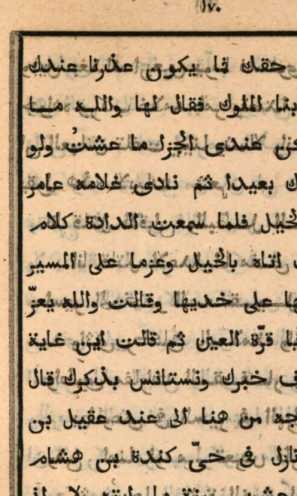 ١٧٠
حقك ما يكون عذرنا عندك
بنا الملوك فقال لها والله ما
عندى الجزا ما عشت ولو
بعيدا ثم نادى غلامه عامر
الخيل فلما سمعت الدادة كلام
اتاه بالخيل وعزما على المسير
على خديها وقالت والله يعزّ
يا قرّة العين ثم قالت اين غاية
خبرك ونستانس بذكرك قال
من هنا الى عند عقيل بن
نازل فى حىّ كندة بن هشام